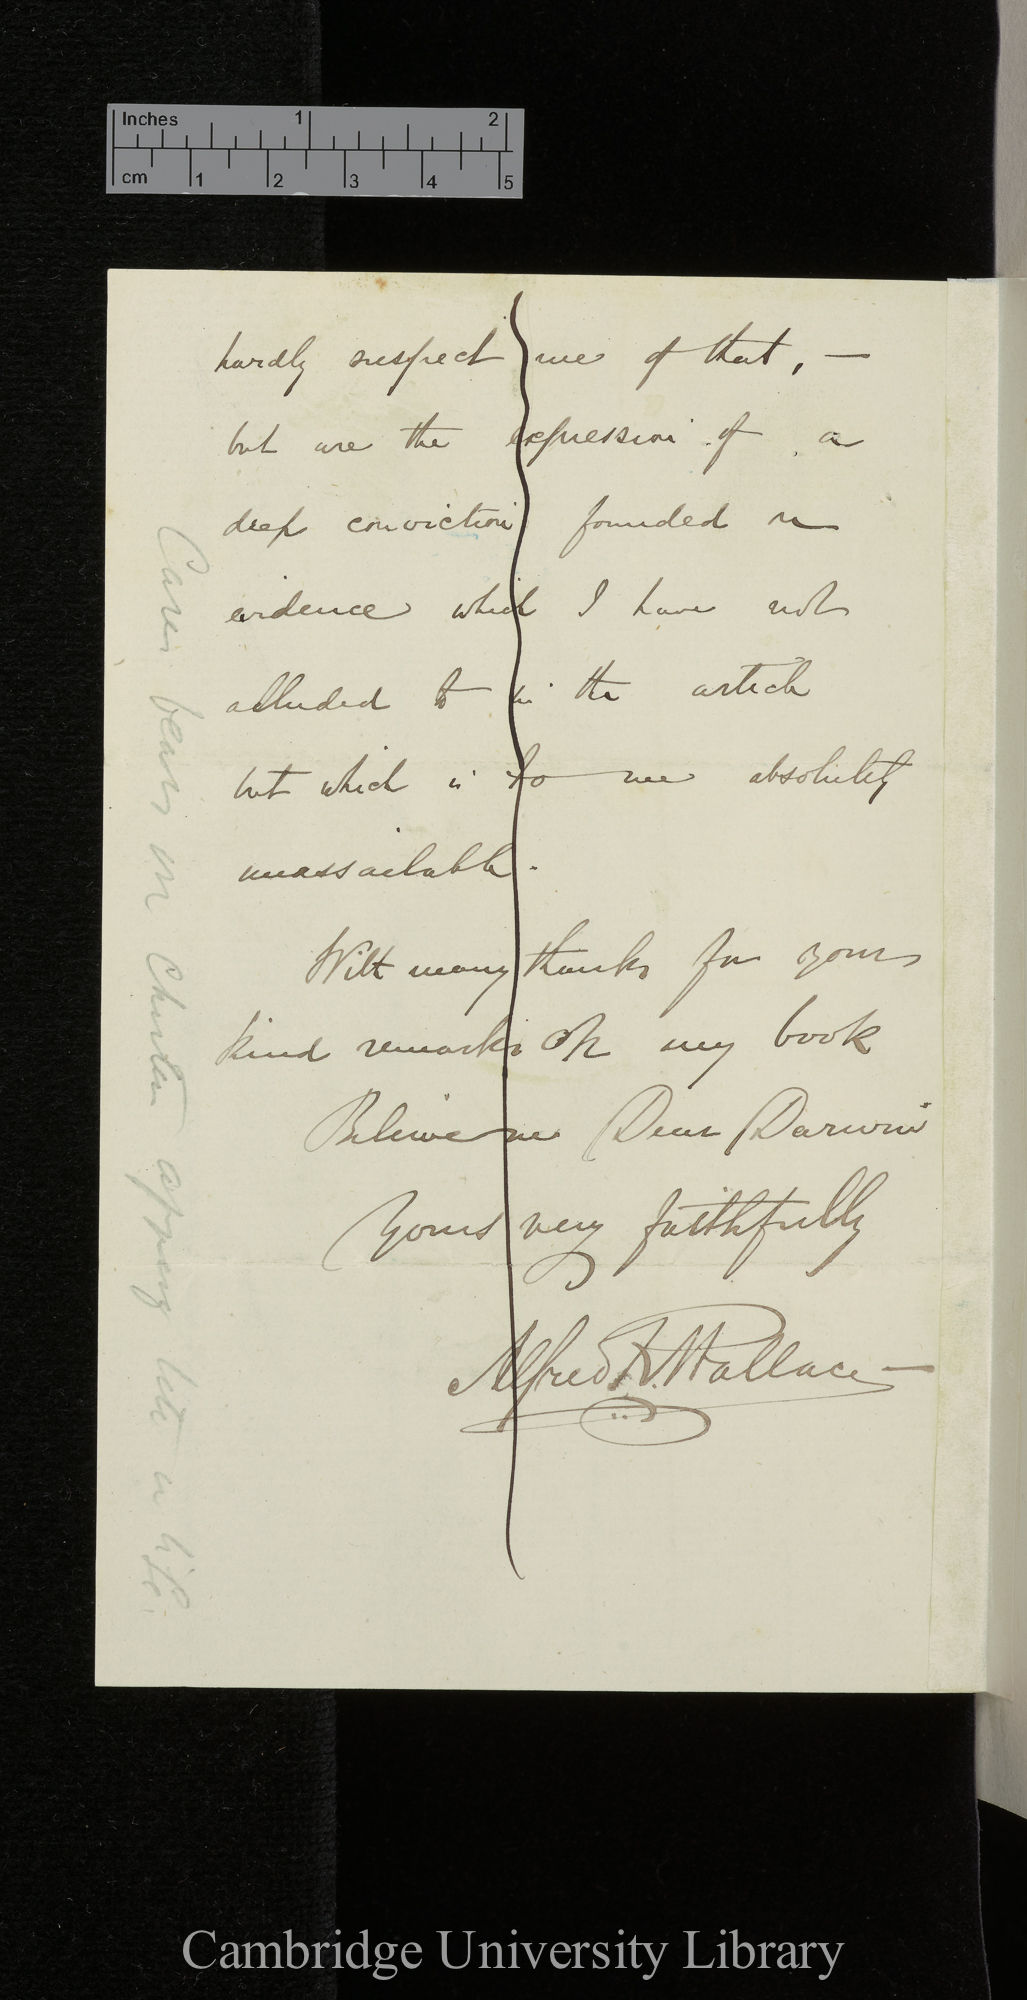 Inches 1 2
cm 1 2 3 4 5
hardly suspect me of that, —
but are the expression of a
deep conviction founded on
evidence which I have not
alluded to in the article
but which is to me absolutely
unassailable.
With many thanks for your
kind remarks on my book
Believe me Dear Darwin
Yours very faithfully
Alfred R. Wallace —
bears in life.
Cambridge University Library